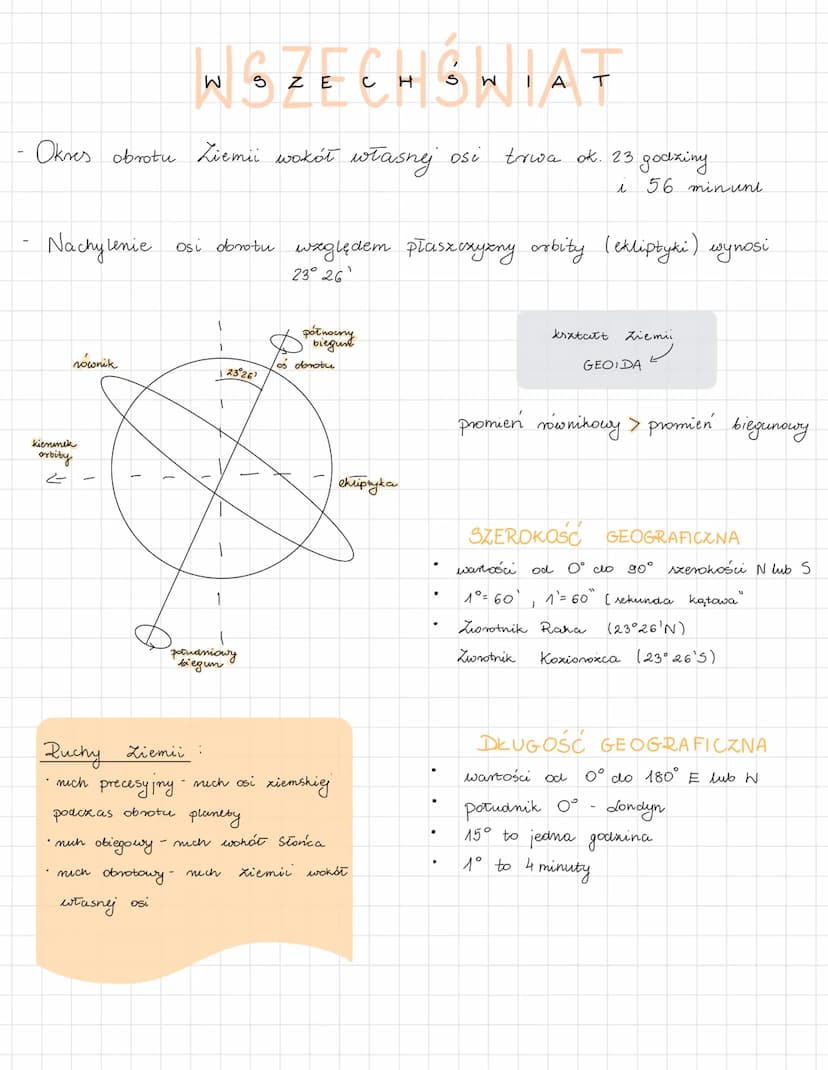 WSZECHŚWIAT
WSZECHŚWIAT
- Okres obrotu Ziemii wokół własnej osi trwa ok. 23 godziny
i 56 minunl
- Nachylenie osi obrotu względem płaszczyzny orbity (ekliptyki) wynosi
23° 26'
północny
biegun
oś obrotu
równik
23°26'
kierunek
orbity
ekliptyka
południowy
biegun
kształt Ziemii
GEOIDA
promień równikowy > promień biegunowy
SZEROKOŚĆ GEOGRAFICZNA
• wartości od 0° do 90° szerokości N lub S
• 1°= 60' , 1'= 60" [sekunda kątowa"
• Zwrotnik Raka (23°26'N)
Zwrotnik Koziorożca (23°26'S)
Ruchy Ziemii :
• ruch precesyjny - ruch osi ziemskiej
podczas obrotu planety
• ruch obiegowy - ruch wokół Słońca
• ruch obrotowy - ruch Ziemii wokół
własnej osi
DŁUGOŚĆ GEOGRAFICZNA
• wartości od 0° do 180° E lub W
• południk 0° - Londyn
• 15° to jedna godzina
• 1° to 4 minuty